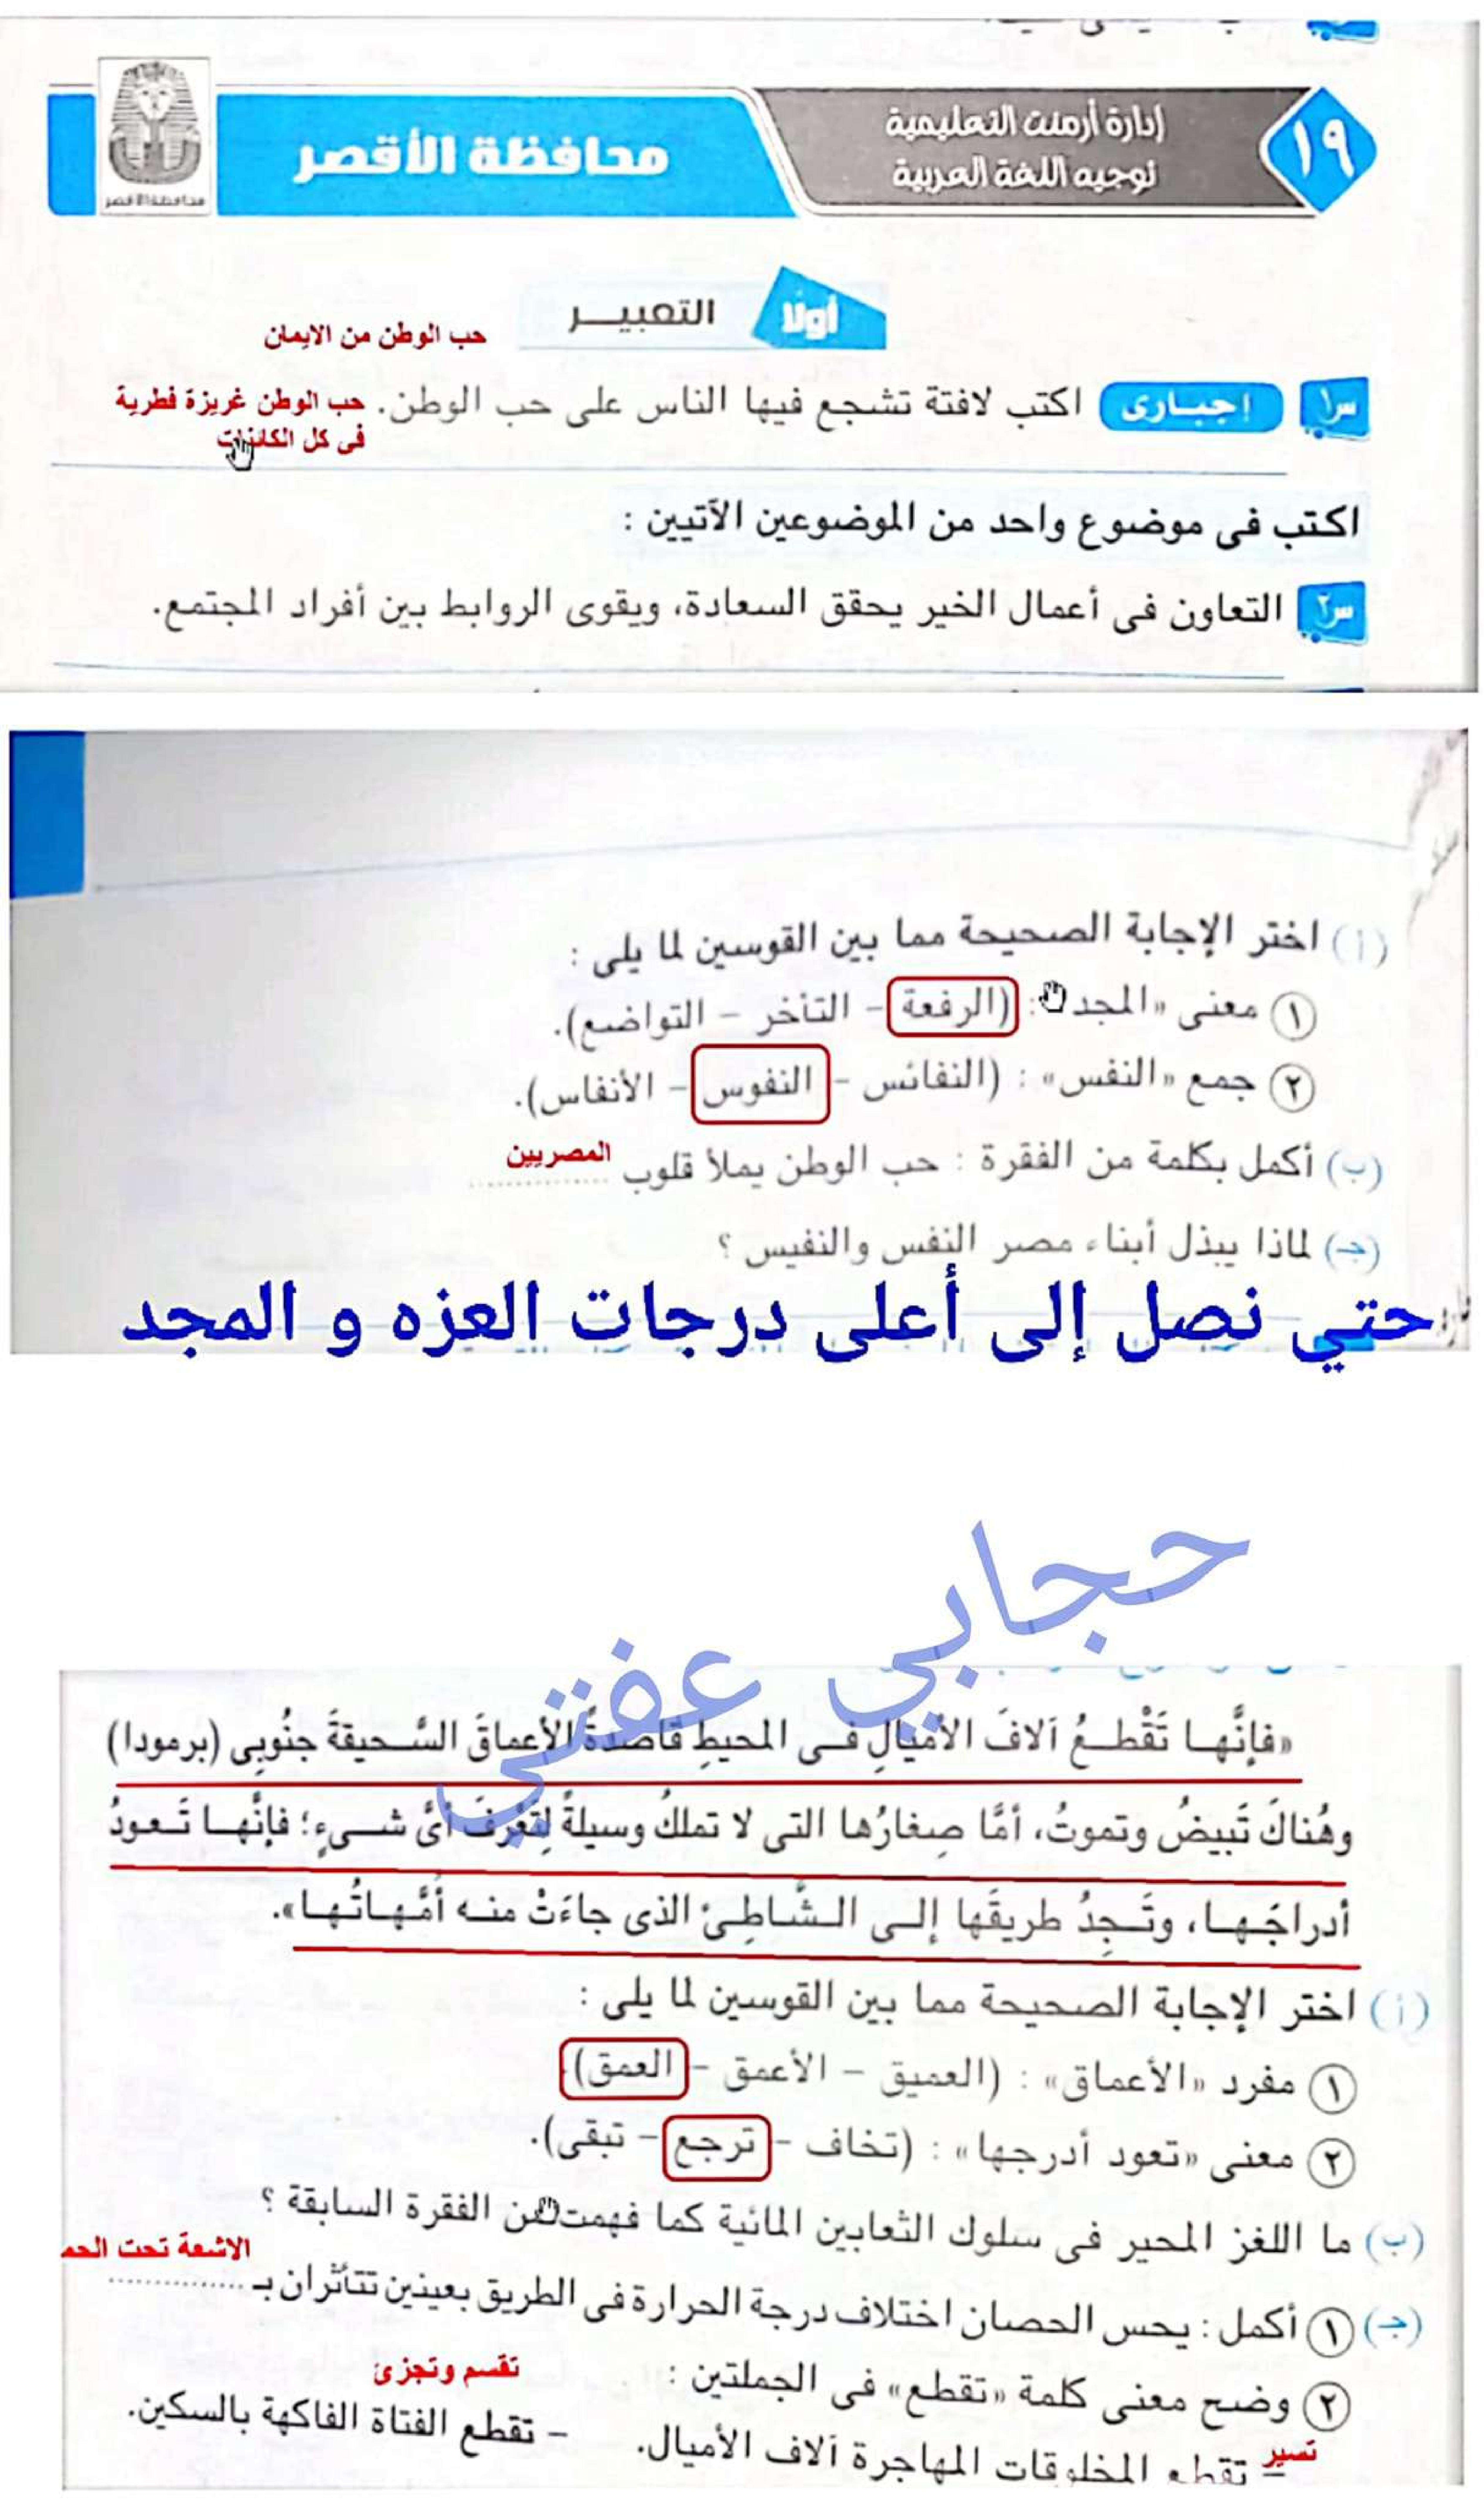 ١٩
إدارة أرمنت التعليمية
توجيه اللغة العربية
محافظة الأقصر
محافظة الأقصر
أولًا التعبيــر
حب الوطن من الايمان
س١ إجبـارى اكتب لافتة تشجع فيها الناس على حب الوطن.
حب الوطن غريزة فطرية
فى كل الكائنات
اكتب فى موضوع واحد من الموضوعين الآتيين :
س٢ التعاون فى أعمال الخير يحقق السعادة، ويقوى الروابط بين أفراد المجتمع.
(أ) اختر الإجابة الصحيحة مما بين القوسين لما يلى :
١ معنى «المجد»: (الرفعة – التأخر – التواضع).
٢ جمع «النفس» : (النفائس – النفوس – الأنفاس).
(ب) أكمل بكلمة من الفقرة : حب الوطن يملأ قلوب ............ المصريين
(جـ) لماذا يبذل أبناء مصر النفس والنفيس ؟
حتي نصل إلى أعلى درجات العزه و المجد
حجابي عفتي
«فإنَّهـا تَقْطـعُ آلافَ الأميالِ فـى المحيطِ قاصدةً الأعماقَ السَّـحيقةَ جنُوبِى (برمودا)
وهُناكَ تَبيضُ وتموتُ، أمَّا صِغارُها التى لا تملكُ وسيلةً لِتَعْرِفَ أىَّ شـىءٍ؛ فإنَّهـا تَـعودُ
أدراجَـهـا، وتَـجِدُ طريقَها إلـى الـشَّاطِئ الذى جاءَتْ منـه أمَّـهـاتُـهـا».
(أ) اختر الإجابة الصحيحة مما بين القوسين لما يلى :
١ مفرد «الأعماق» : (العميق – الأعمق – العمق)
٢ معنى «تعود أدرجها» : (تخاف – ترجع – تبقى).
(ب) ما اللغز المحير فى سلوك الثعابين المائية كما فهمت من الفقرة السابقة ؟
الاشعة تحت الحم
(جـ) ١ أكمل : يحس الحصان اختلاف درجة الحرارة فى الطريق بعينين تتأثران بـ ............
٢ وضح معنى كلمة «تقطع» فى الجملتين :
تقسم وتجزئ
تسير
– تقطع المخلوقات المهاجرة آلاف الأميال. – تقطع الفتاة الفاكهة بالسكين.